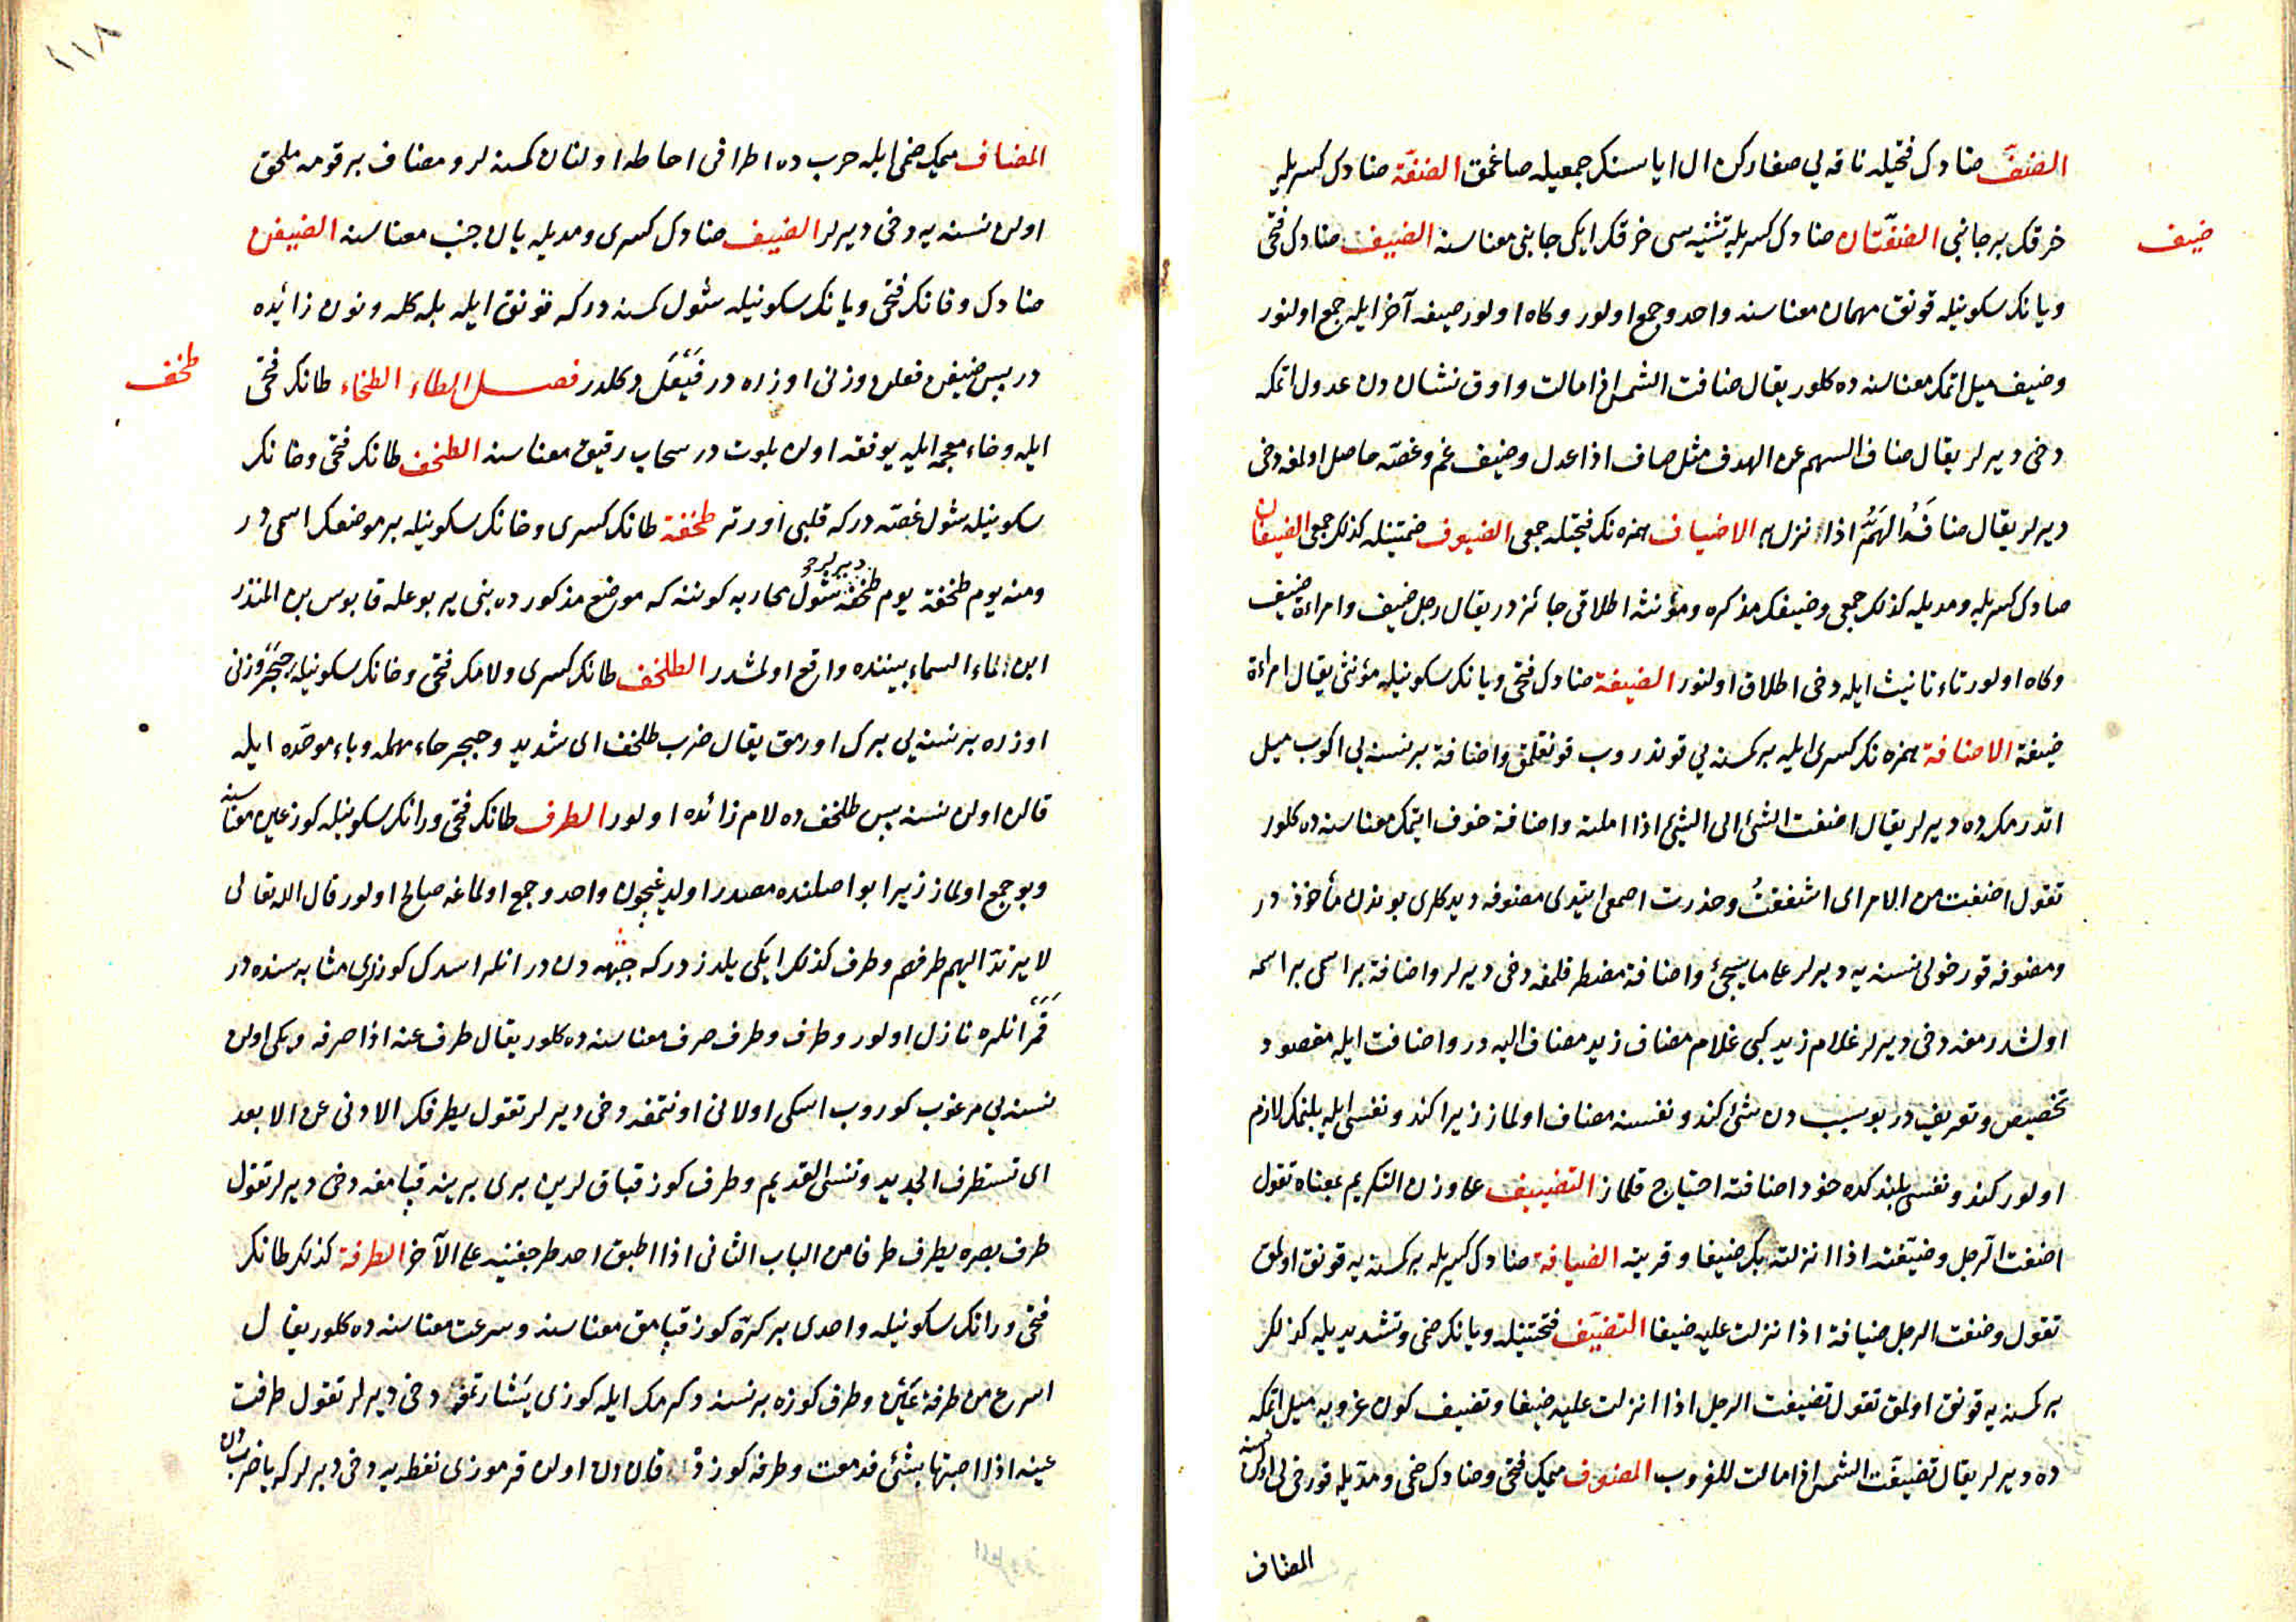 الضفّ ضادك فتحيله ناقه يي صغاركن ال اياسنك جمعيله صاغمق الضفّة ضادك كسريله
ضيف
خرقك بر جانبى الضفّتان ضادك كسريله تثنيه سى خرقك ايكى جانبى معناسنه الضيف ضادك فتحى
ويانك سكونيله قونق مهمان معناسنه واحد وجمع اولور وكاه اولور صيغۀ آخر ايله جمع اولنور
وضيف ميل اتمك معناسنه ده كلور يقال ضافت الشمس اذا مالت واوق نشان دن عدول اتمكه
دخى ديرلر يقال ضاف السهم عن الهدف مثل صاف اذا عدل وضيف غم وغصّه حاصل اولمغه دخى
ديرلر يقال ضافَهُ الهَمُّ اذا نزل به الاضياف همزه نك فتحيله جمعى الضيوف ضمتينله كذلك جمعى الضيفان
ضادك كسريله ومديله كذلك جمعى وضيفك مذكره ومؤنثه اطلاقى جائزدر يقال رجل ضيف وامراءة ضيف
وكاه اولور تاء تانيث ايله دخى اطلاق اولنور الضيفة ضادك فتحى ويانك سكونيله مؤنثى يقال امراءة
ضيفة الاضافة همزه نك كسرى ايله بر كمسنه يي قوندروب قونقلمق واضافة بر نسنه يي اكوب ميل
اتدرمكه ده ديرلر يقال اضفت الشئ الى الشئ اذا املته واضافة خوف ايتمك معناسنه ده كلور
تقول اضفت من الامر اى اشفقتُ وحذرت اصمعى ايتدى مضوفه ديدكلرى بوندن مأخوذدر
ومضوفه قورخولى نسنه يه ديرلر على ما سيجئ واضافة مضطر قلمغه دخى ديرلر واضافة بر اسمى بر اسمه
اولشدرمغه دخى ديرلر غلام زيد كبى غلام مضاف زيد مضاف اليه در واضافت ايله مقصود
تخصيص وتعريفدر بو سببدن شئ كندو نفسنه مضاف اولماز زيرا كندو نفسى ايله بلنمك لازم
اولور كندو نفسيله بلندكده خود اضافته احتياج قلماز التضييف على وزن التكريم بمعناه تقول
اضفت الرجل وضيّفته اذا انزلته بك ضيفا وقريته الضيافة ضادك كسريله بر كمسنه يه قونق اولمق
تقول وضفت الرجل ضيافة اذا نزلت عليه ضيفا التضيّف فتحتينله ويانك ضمى وتشديديله كذلك
بر كمسنه يه قونق اولمق تقول تضيفت الرجل اذا نزلت عليه ضيفا وتضيف كون غروبه ميل اتمكه
ده ديرلر يقال تضيّفت الشمس اذا مالت للغروب المضوف ميمك فتحى وضادك ضمى ومدّيله قورخى لى اولن نسنه
المضاف
١١٨
المضاف ميمك ضمى ايله حرب ده اطرافى احاطه اولنان كمسنه لر ومضاف بر قومه ملحق
اولن نسنه يه دخى ديرلر الضيف ضادك كسرى ومديله يان جنب معناسنه الضيفن
ضادك وفانك فتحى ويانك سكونيله شول كمسنه دركه قونق ايله بله كله ونون زائده
در پس ضيفن فعلن وزنى اوزره در فَيْعَل دكلدر فصل الطاء الطخاء طانك فتحى
طخف
ايله وخاء معجمه ايله يوفقه اولن بلوت در سحاب رقيق معناسنه الطخف طانك فتحى وخانك
سكونيله شول غصّه دركه قلبى اورتر طخفة طانك كسرى وخانك سكونيله بر موضعك اسمى در
ومنه يوم طخفة يوم طخفه ديرلر شول محاربه كوننه كه موضع مذكورده بنى يربوعله قابوس بن المنذر
ابن ماء السماء بيننده واقع اولمشدر الطلخف طانك كسرى ولامك فتحى وخانك سكونيله حِبَجْر وزنى
اوزره بر نسنه يي برك اورمق يقال ضرب طلخف اى شديد وحبجر حاء مهمله وباء موحّده ايله
قالن اولن نسنه پس طلخف ده لام زائده اولور الطرف طانك فتحى ورانك سكونيله كوز عين معناسنه
وبو جمع اولماز زيرا بو اصلنده مصدر اولديغچون واحد وجمع اولماغه صالح اولور قال الله تعالى
لا يرتدّ اليهم طرفهم وطرف كذلك ايكى يلدزدركه جبهه دن در انلر اسدك كوزلرى مثابه سنده در
قَمَر انلره نازل اولور وطرف وطرف صرف معناسنه ده كلور يقال طرف عنه اذا صرفه ويكى اولن
نسنه يي مرغوب كوروب اسكى اولانى اونتمغه دخى ديرلر تقول يطرفك الادنى عن الابعد
اى تستطرف الجديد وتنسى القديم وطرف كوز قپاقلرين برى برينه قپامغه دخى ديرلر تقول
طرف بصره يطرف طرفا من الباب الثانى اذا اطبق احد جفنيه على الآخر الطرفة كذلك طانك
فتحى ورانك سكونيله واحدى بر كرّه كوز قپامق معناسنه وسرعت معناسنه ده كلور يقال
اسرع من طرفة عَيْن وطرف كوزه بر نسنه دكرمك ايله كوزى يشارتمغه دخى ديرلر تقول طرفت
عينه اذا اصبتها بشئ فدمعت وطرفه كوزده قاندن اولن قرموزى نقطه يه دخى ديرلركه يا ضربدن